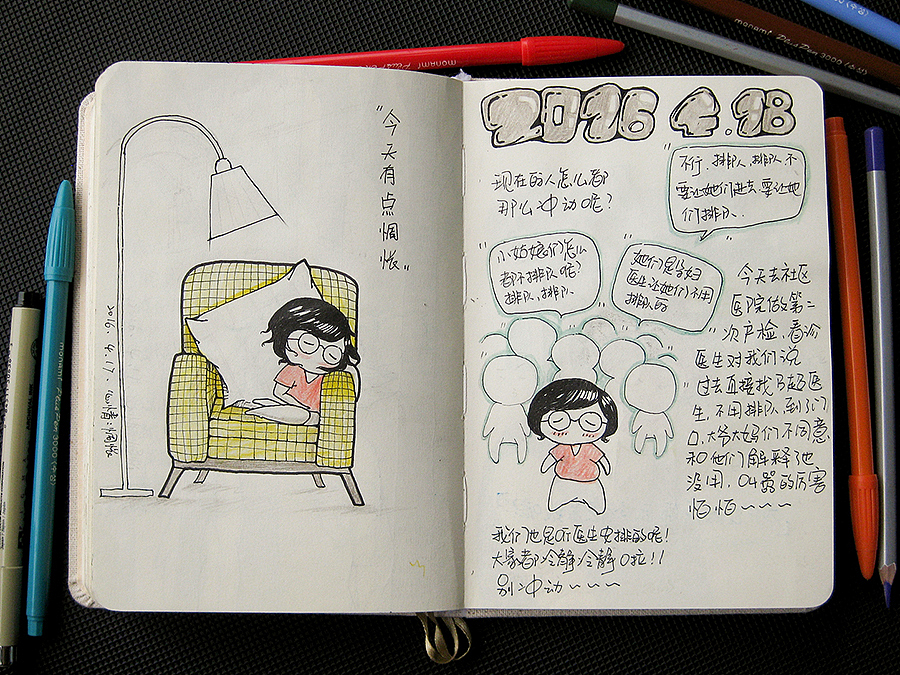 monami Plus Pen 3000
monami Plus Pen 3000 (수성)
monami Plus Pen 3000 (수성)
(수성)
"今天有点惆怅"
2016.4.17.心情:惆怅
2016 4.18
现在的人怎么都
那么冲动呢?
不行,排队,排队,不
要让她们进去,要让她
们排队.
小姑娘们怎么
都不排队呢?
排队,排队
她们是孕妇
医生让她们不用
排队的
今天去社区
医院做第二
次产检,看诊
医生对我们说
过去直接找B超医
生,不用排队,到了门
口,大爷大妈们不同意
和他们解释也
没用,吵嚣的厉害
怕怕~~~~
我们也是听医生安排的呢!
大家都冷静冷静口拉!!
别冲动~~~